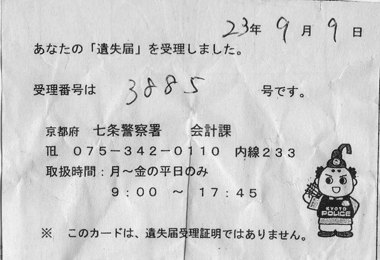 23年 9月 9日
あなたの「遺失届」を受理しました。
受理番号は 3885 号です。
京都府 七条警察署 会計課
℡ 075-342-0110 内線233
取扱時間：月～金の平日のみ
9:00 ～ 17:45
KYOTO
POLICE
※ このカードは、遺失届受理証明ではありません。